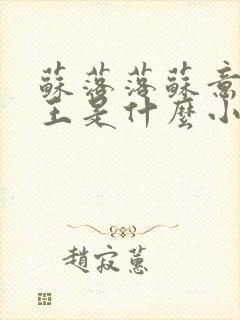 蘇落落蘇意
王是什麼小
趙寂蕙